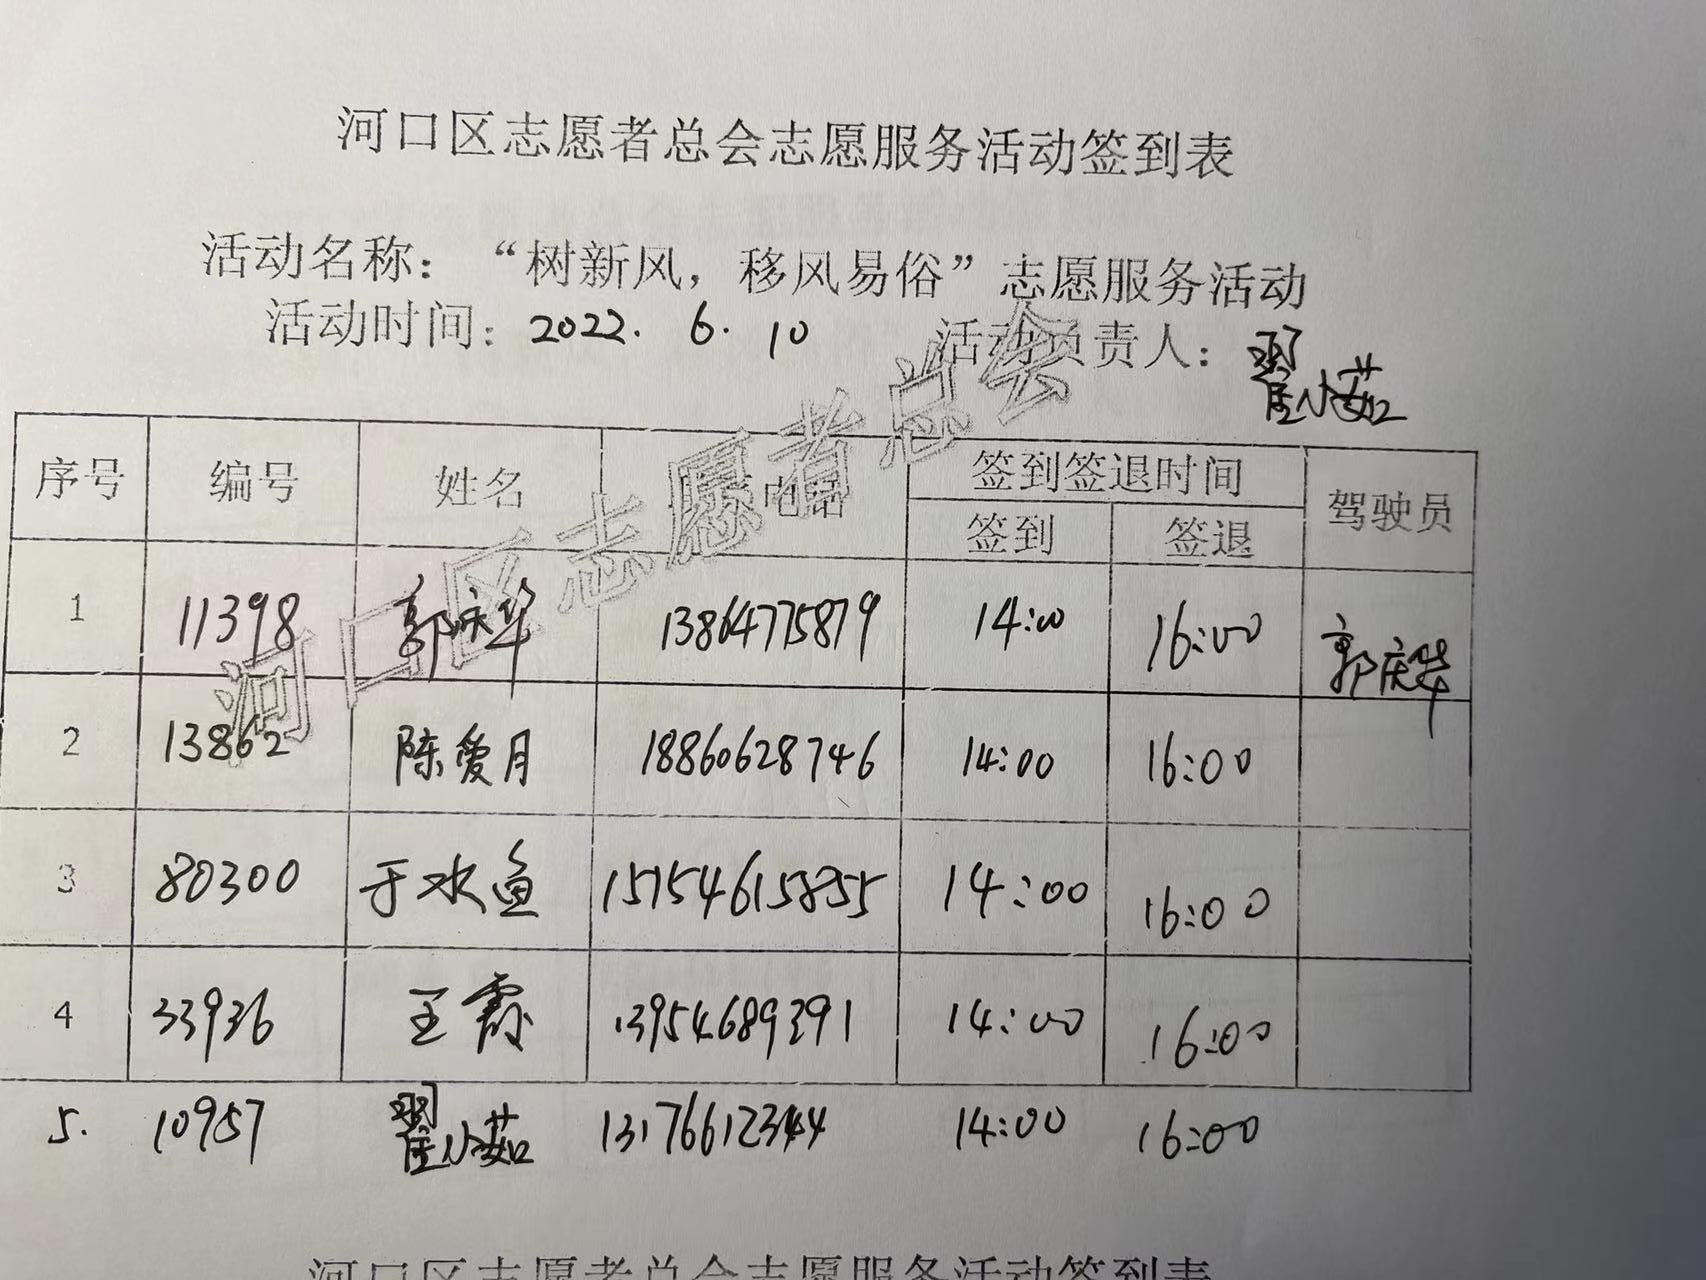 河口区志愿者总会志愿服务活动签到表
活动名称：“树新风，移风易俗”志愿服务活动
活动时间：2022. 6. 10 活动负责人：翟小茹
序号 编号 姓名 电话 签到签退时间 驾驶员
签到 签退
1 11398 郭庆华 13864775879 14:00 16:00 郭庆华
2 13862 陈爱月 18860628746 14:00 16:00
3 80300 于水鱼 15154615855 14:00 16:00
4 33936 王霞 13954689391 14:00 16:00
5. 10957 翟小茹 13176612344 14:00 16:00
河口区志愿者总会志愿服务活动签到表
河口区志愿者总会